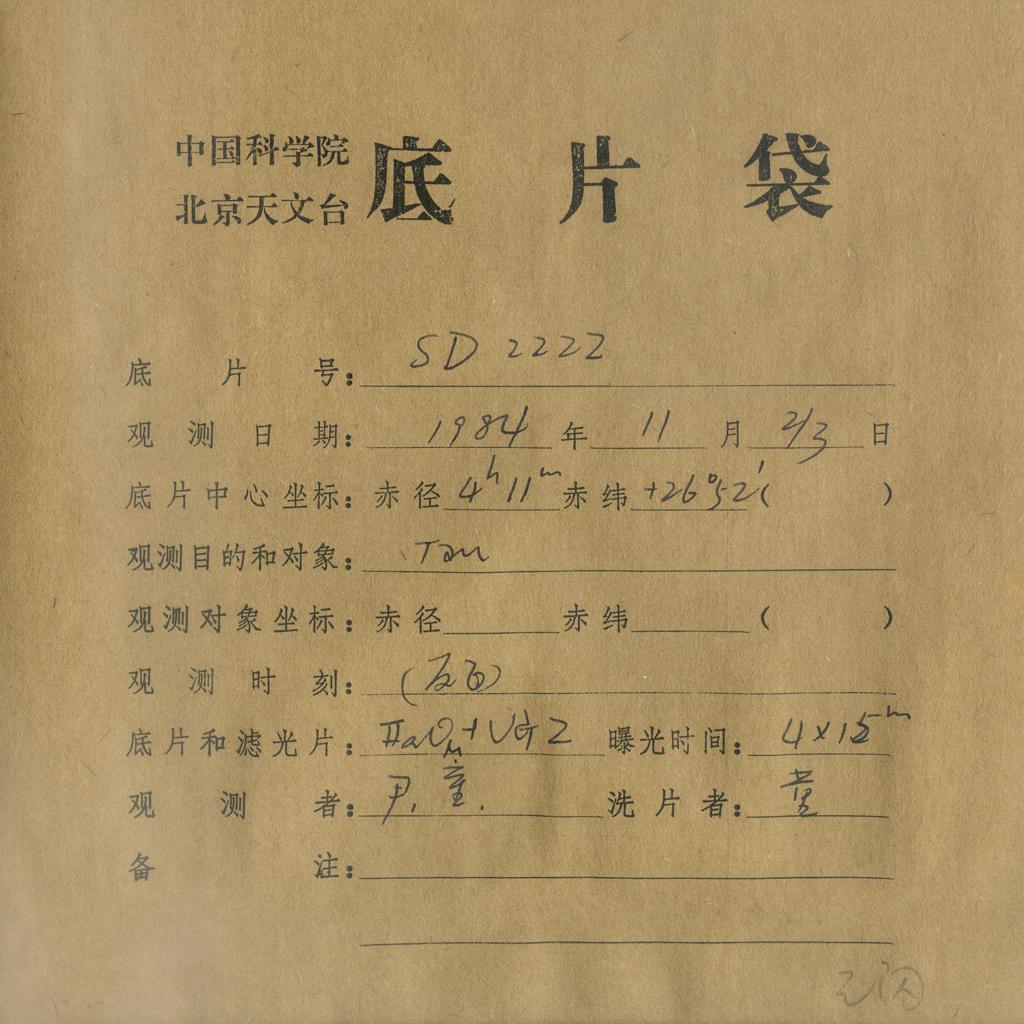 中国科学院
北京天文台 底片袋
底片号: SD 2222
观测日期: 1984 年 11 月 2/3 日
底片中心坐标: 赤径 4h 11m 赤纬 +26°52′ ( )
观测目的和对象: Tau
观测对象坐标: 赤径 赤纬 ( )
观测时刻:
底片和滤光片: IIaO + UG 2 曝光时间: 4×15m
观测者: 尹. 童. 洗片者: 黄
备注: